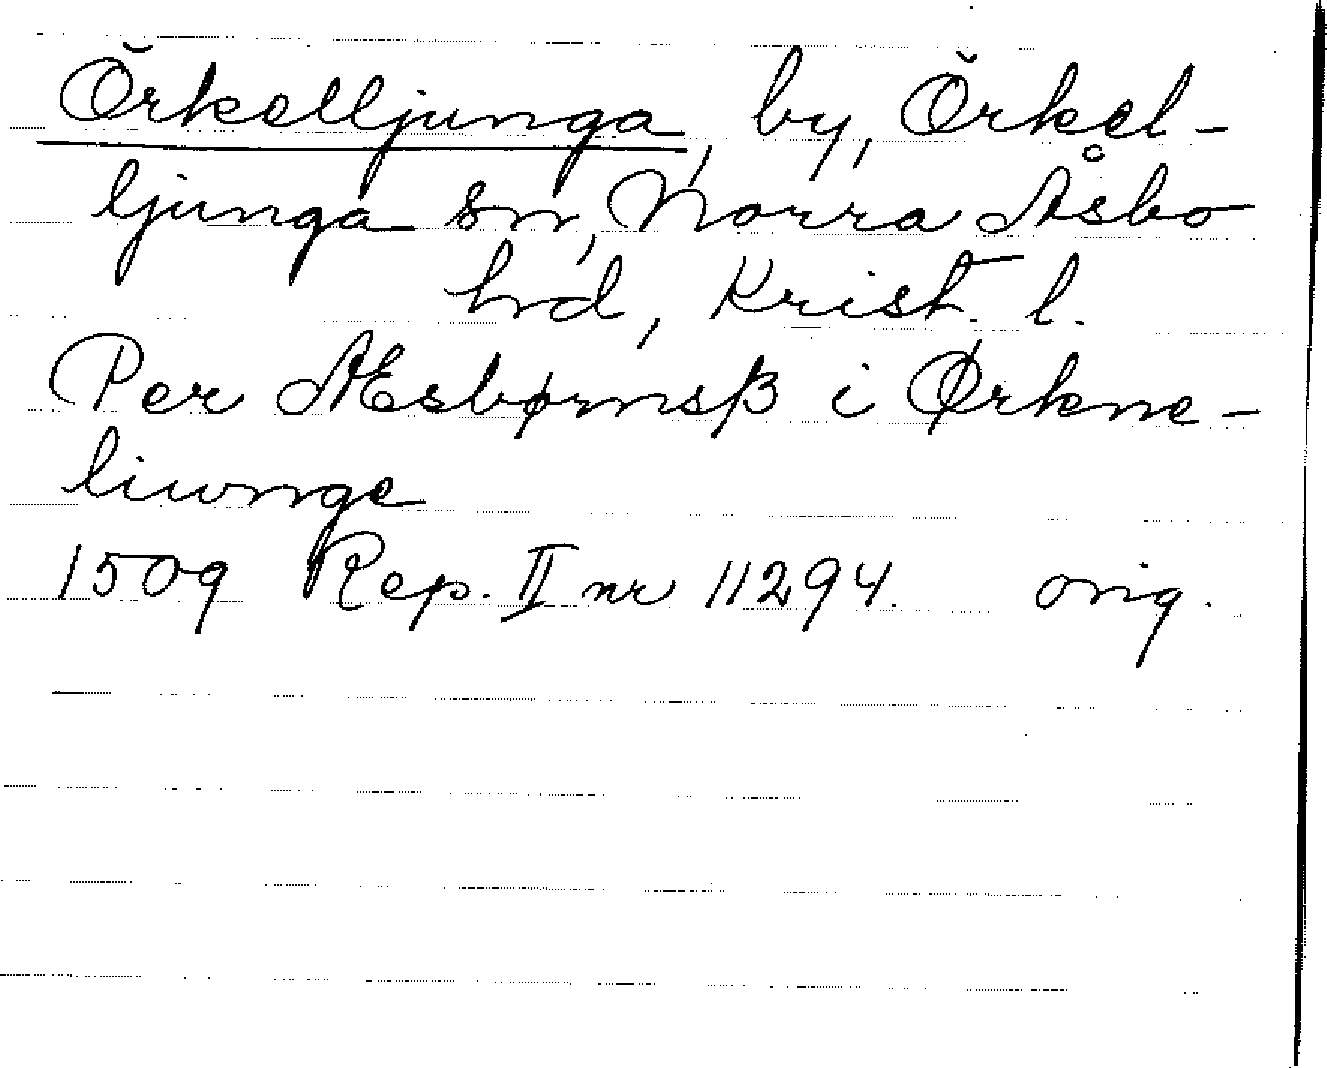 Örkelljunga, by, Örkel-
ljunga sn, Norra Åsbo
hrd, Krist. l.
Per Æsbørnsß i Ørkne-
liwnge
1509 Rep. II nr 11294. orig.